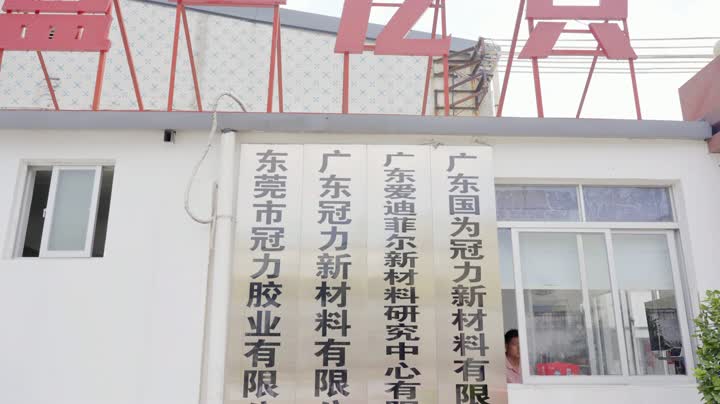 东莞市冠力胶业有限
广东冠力新材料有限
广东爱迪菲尔新材料研究中心有限
广东国为冠力新材料有限